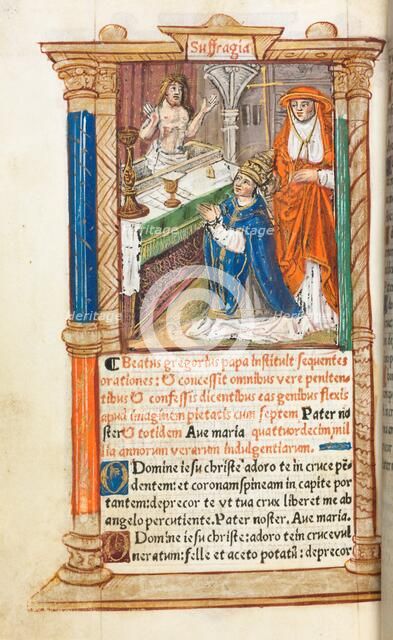 Suffragia
¶ Beatus gregorius papa instituit sequentes
orationes: & concessit omnibus vere peniten-
tibus & confessis dicentibus eas genibus flexis
apud imaginem pietatis cum septem Pater no
ster & totidem Aue maria quattuordecim mil
lia annorum verarum indulgentiarum.
O Domine iesu christe adoro te in cruce pē
dentem: et coronam spineam in capite por
tantem: deprecor te vt tua crux liberet me ab
angelo percutiente. Pater noster. Aue maria.
O Domine iesu christe: adoro te in cruce vul
neratum: felle et aceto potatū: deprecor
Heritage
Heritage
Heritage
Heritage
Heritage
Heritage